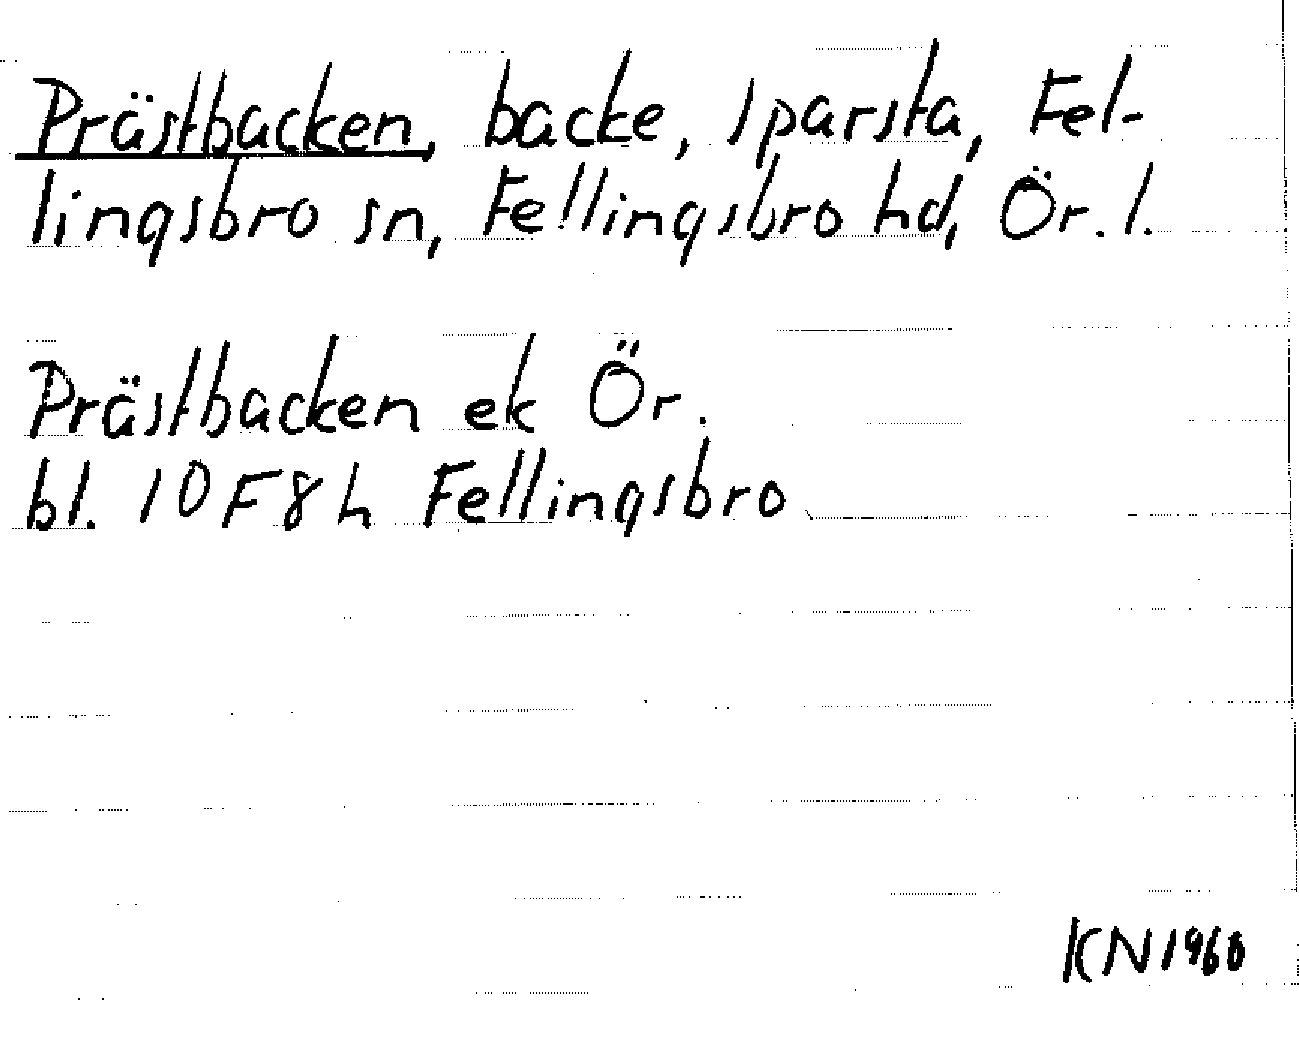 Prästbacken, backe, Sparsta, Fel-
lingsbro sn, Fellingsbro hd, Ör. l.
Prästbacken ek Ör.
bl. 10F8h Fellingsbro
KN 1960